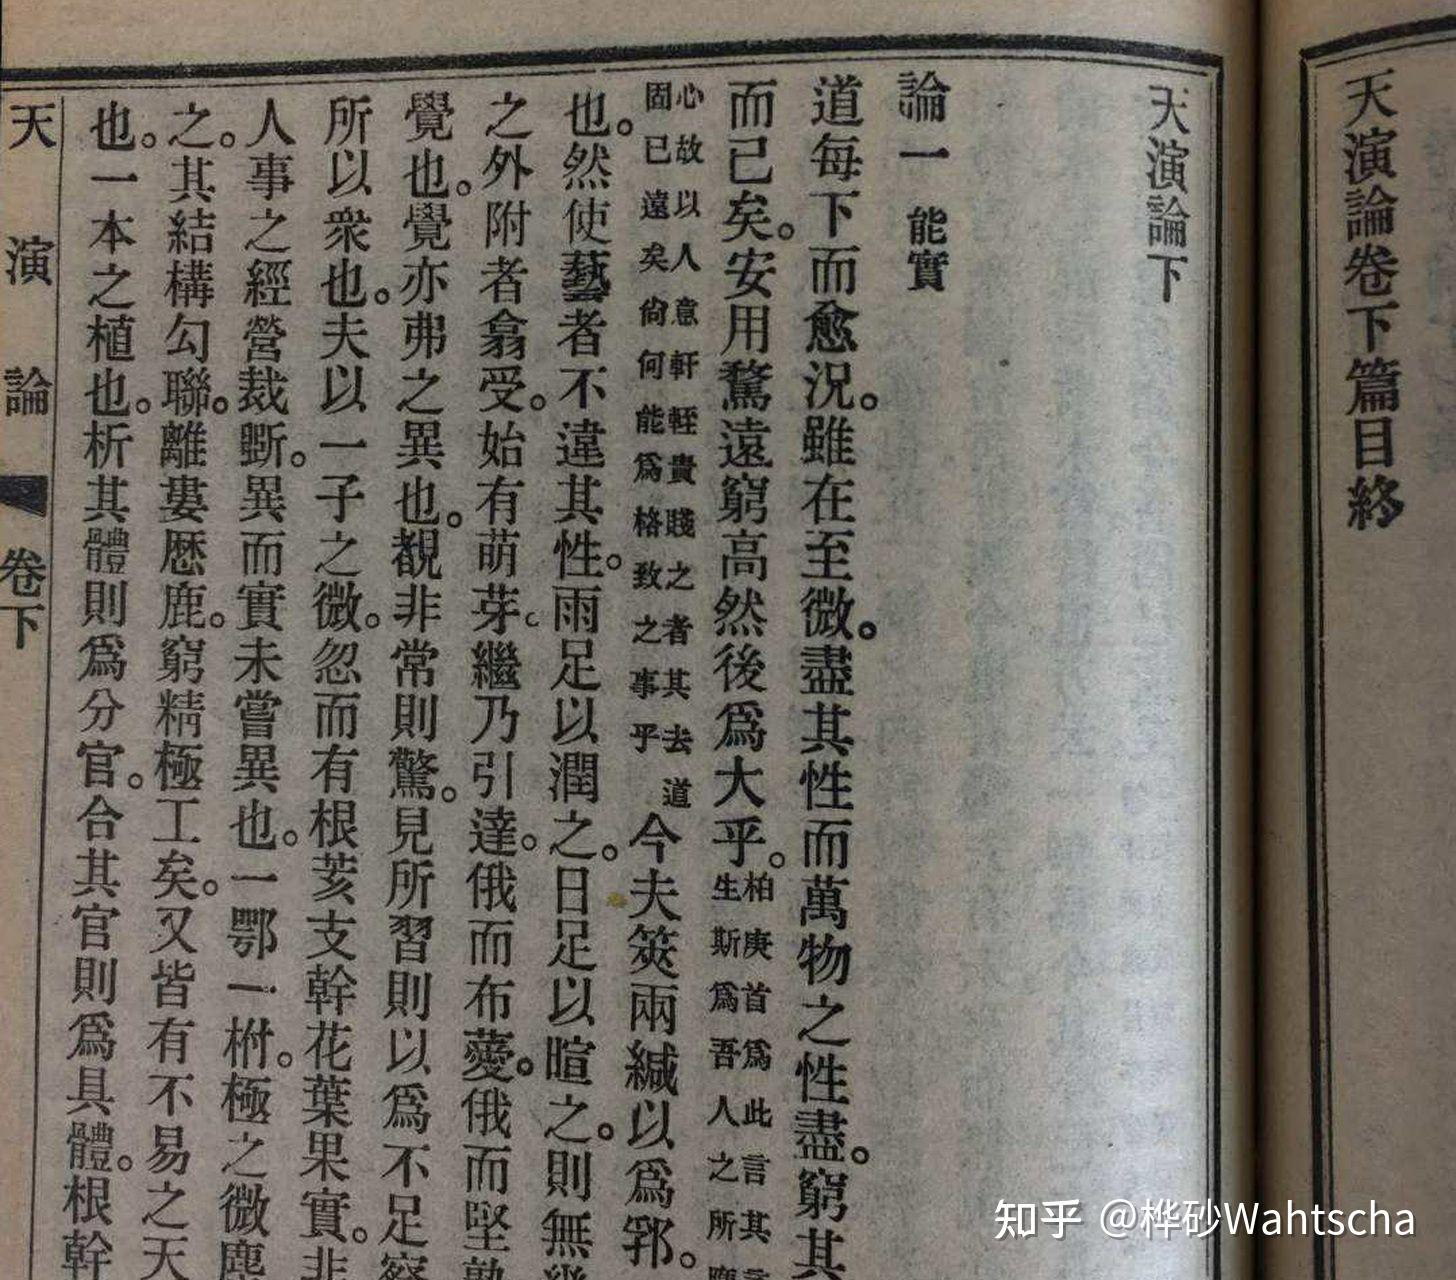 天演論卷下篇目終
天演論下
論一 能實
道每下而愈況。雖在至微。盡其性而萬物之性盡。窮其
而已矣。安用騖遠窮高然後爲大乎。柏庚首爲此言其
生斯爲吾人之所
心故以人意軒輊貴賤之者其去道
固已遠矣尙何能爲格致之事乎
今夫筴兩緘以爲郛。
也。然使藝者不違其性。雨足以潤之。日足以暄之。則無
之外附者翕受。始有萌芽。繼乃引達。俄而布薆。俄而堅
覺也。覺亦弗之異也。覩非常則驚。見所習則以爲不足
所以衆也。夫以一子之微。忽而有根荄支幹花葉果實。非
人事之經營裁斲。異而實未嘗異也。一鄂一柎。極之微塵
之。其結構勾聯。離婁歷鹿。窮精極工矣。又皆有不易之天
也。一本之植也。析其體則爲分官。合其官則爲具體。根幹
天演論 卷下
知乎 @桦砂Wahtscha